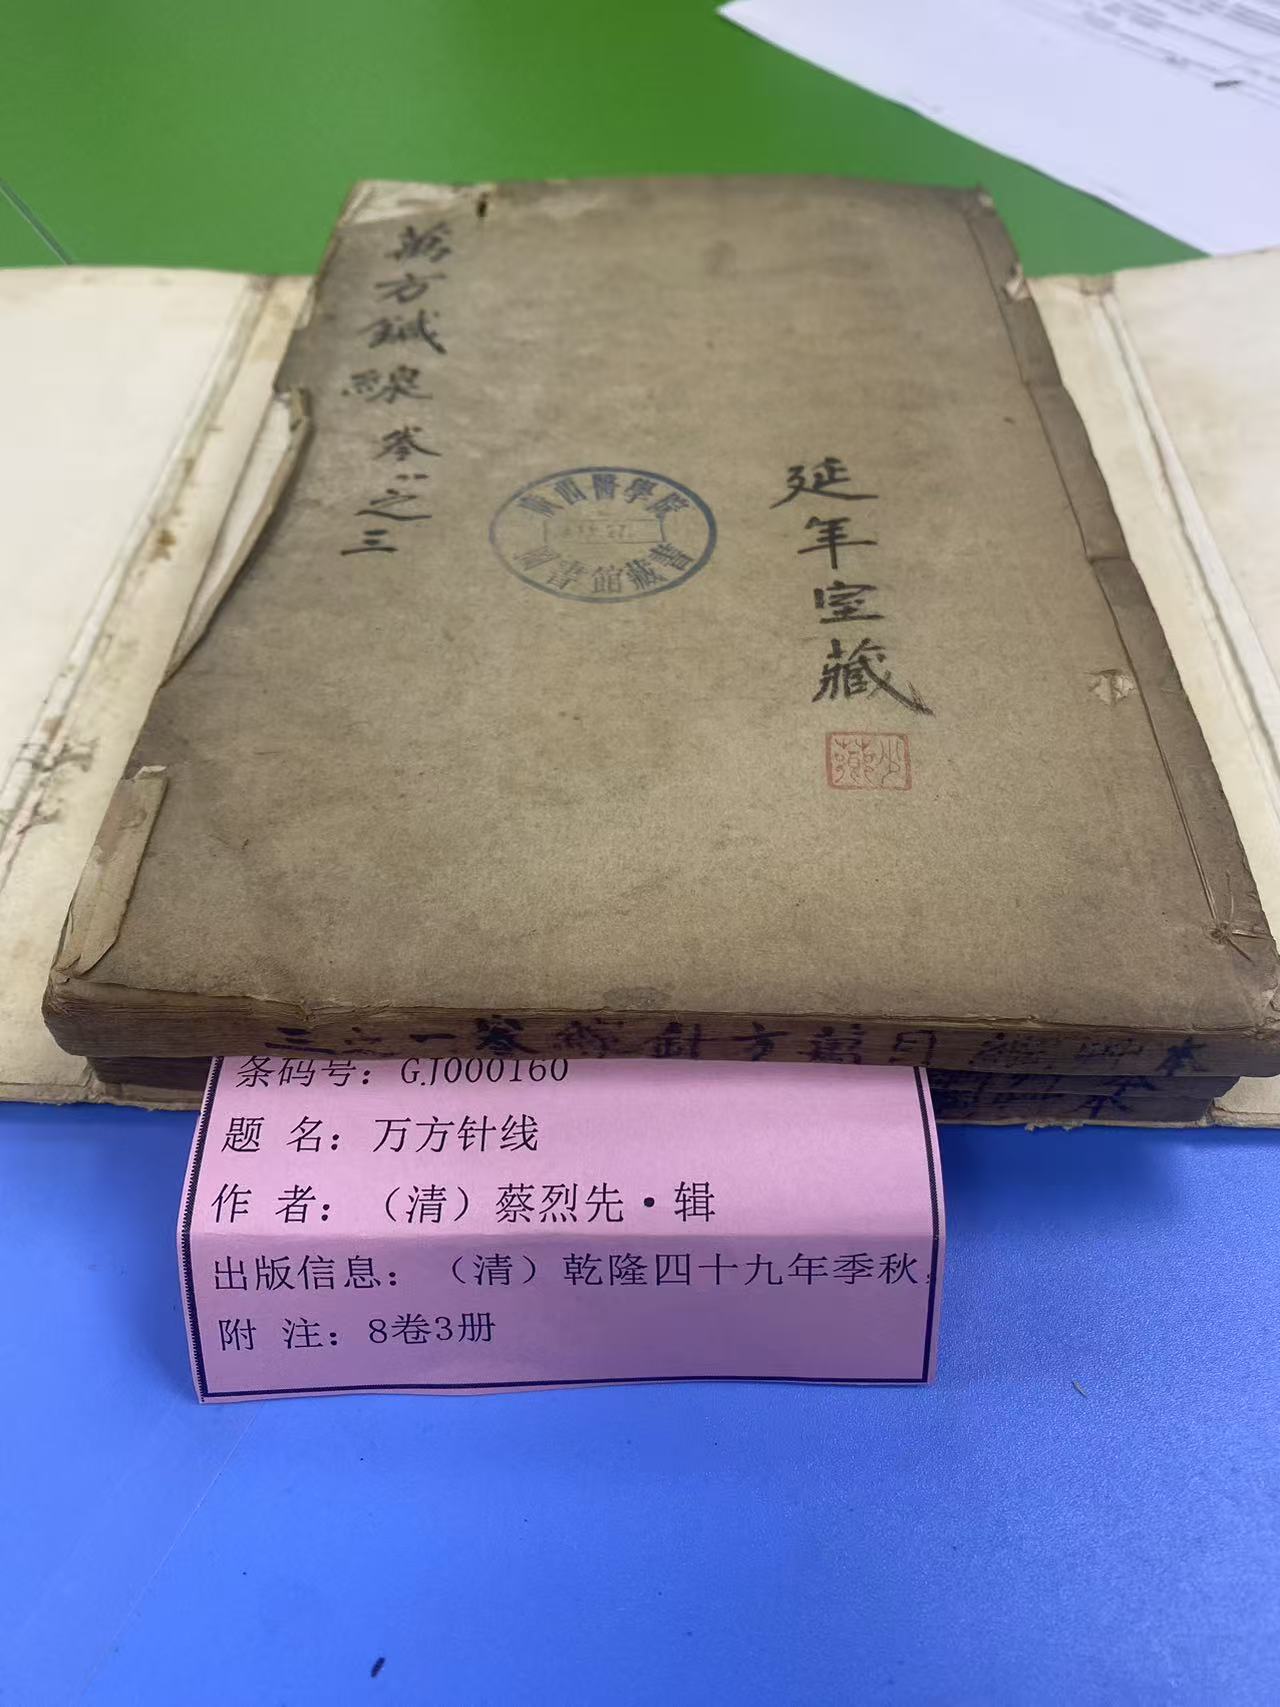 萬方鍼線卷一之三
延年室藏
醫學院
書館藏書
三之一卷線針方萬目
条码号：GJ000160
题 名：万方针线
作 者：（清）蔡烈先·辑
出版信息：（清）乾隆四十九年季秋
附 注：8卷3册